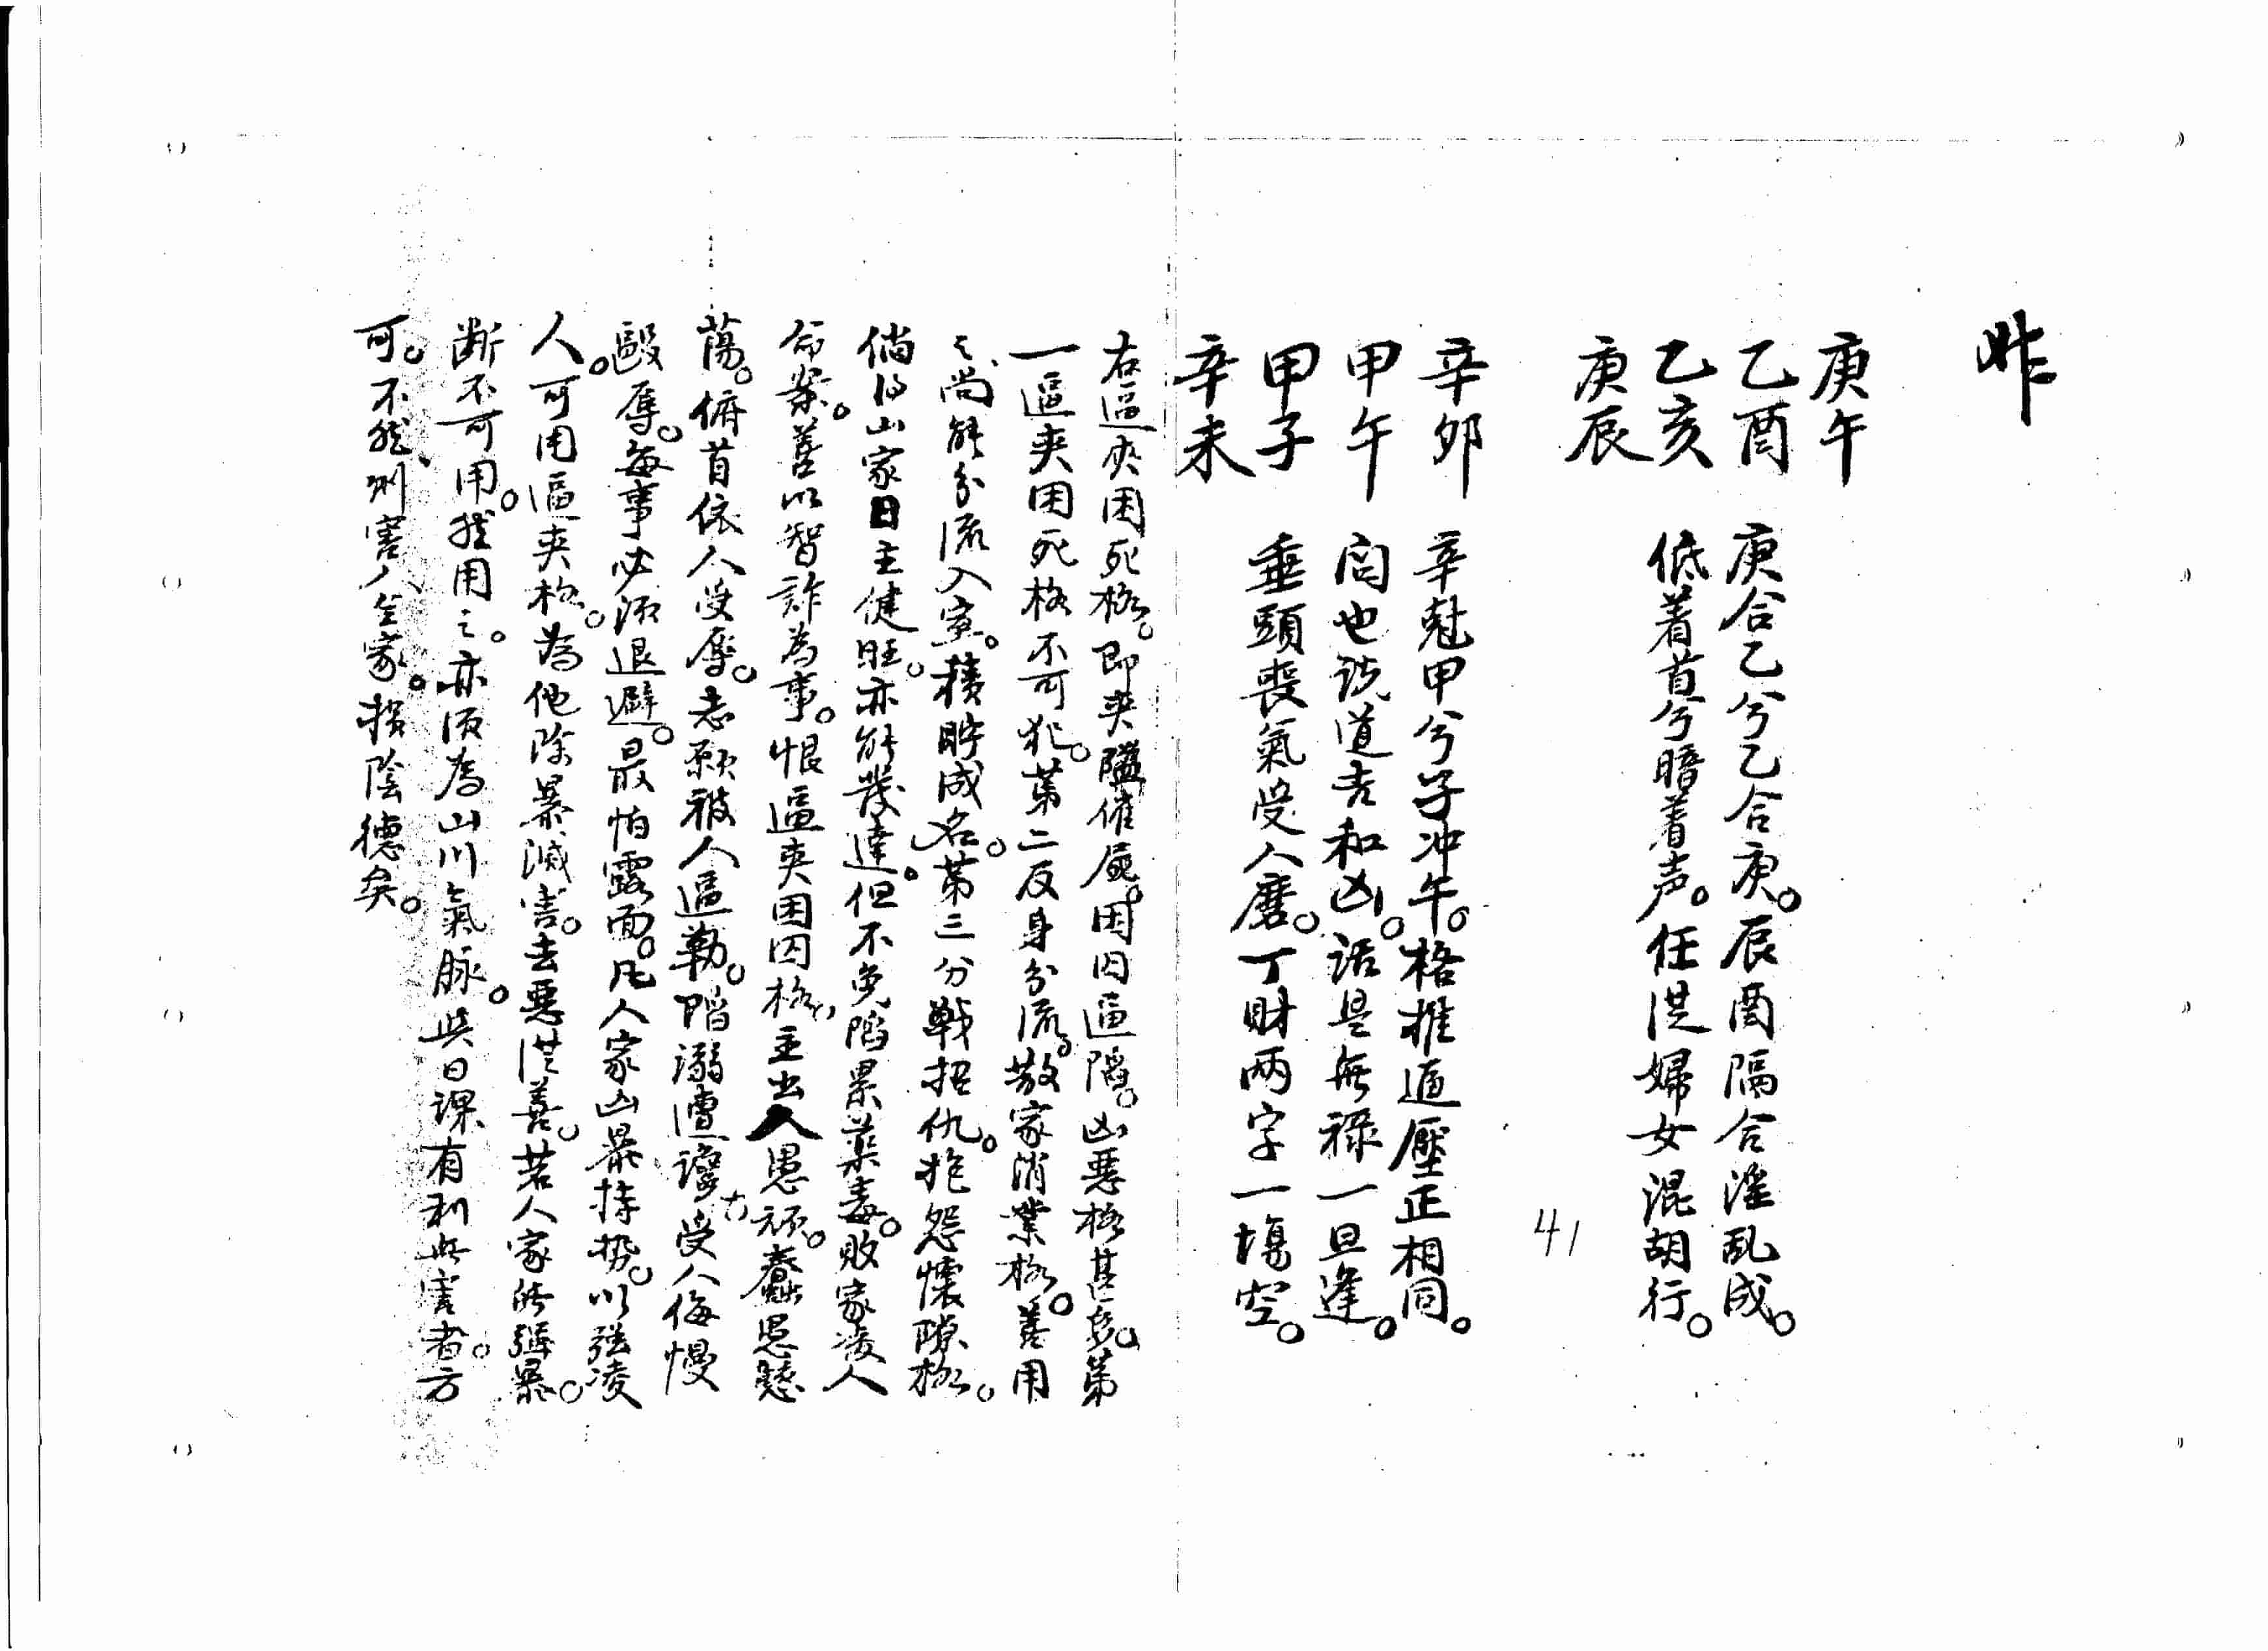 昨
庚午
乙酉 庚合乙兮乙合庚。辰酉隔合淫乱成。
乙亥 低着首兮暗着声。任谌婦女混胡行。
庚辰
41
辛卯 辛尅甲兮子冲午。格推逼壓正相同。
甲午 问也说道吉和凶。話是無禄一旦逢。
甲子 垂頭喪氣受人磨。丁財兩字一塲空。
辛未
右逼夾困死格。即夾隘催屍。困囚逼陷。凶惡格甚多。第
一逼夾困死格不可犯。第二反身分流。散家消業格。善用
之尚能分流入室。積貯成名。第三分戰招仇。抱怨懷隙格。
倘得山家日主健旺。亦能發達。但不免陷累藥毒。敗家凌人
命案。善以智詐為事。恨逼夾困囚格。主出人愚頑。蠢思戆
蕩。俯首依人受辱。志願被人逼勒。陷溺遭讒。受人侮慢
毆辱。每事必須退避。最怕露面。凡人家山暴持势。以强凌
人。可用逼夾格。為他除暴滅害。去惡谌善。若人家能彈暴。
断不可用。然用之。亦須為山川氣脉。與日課有利無害者。方
可。不然則害人全家。損陰德矣。